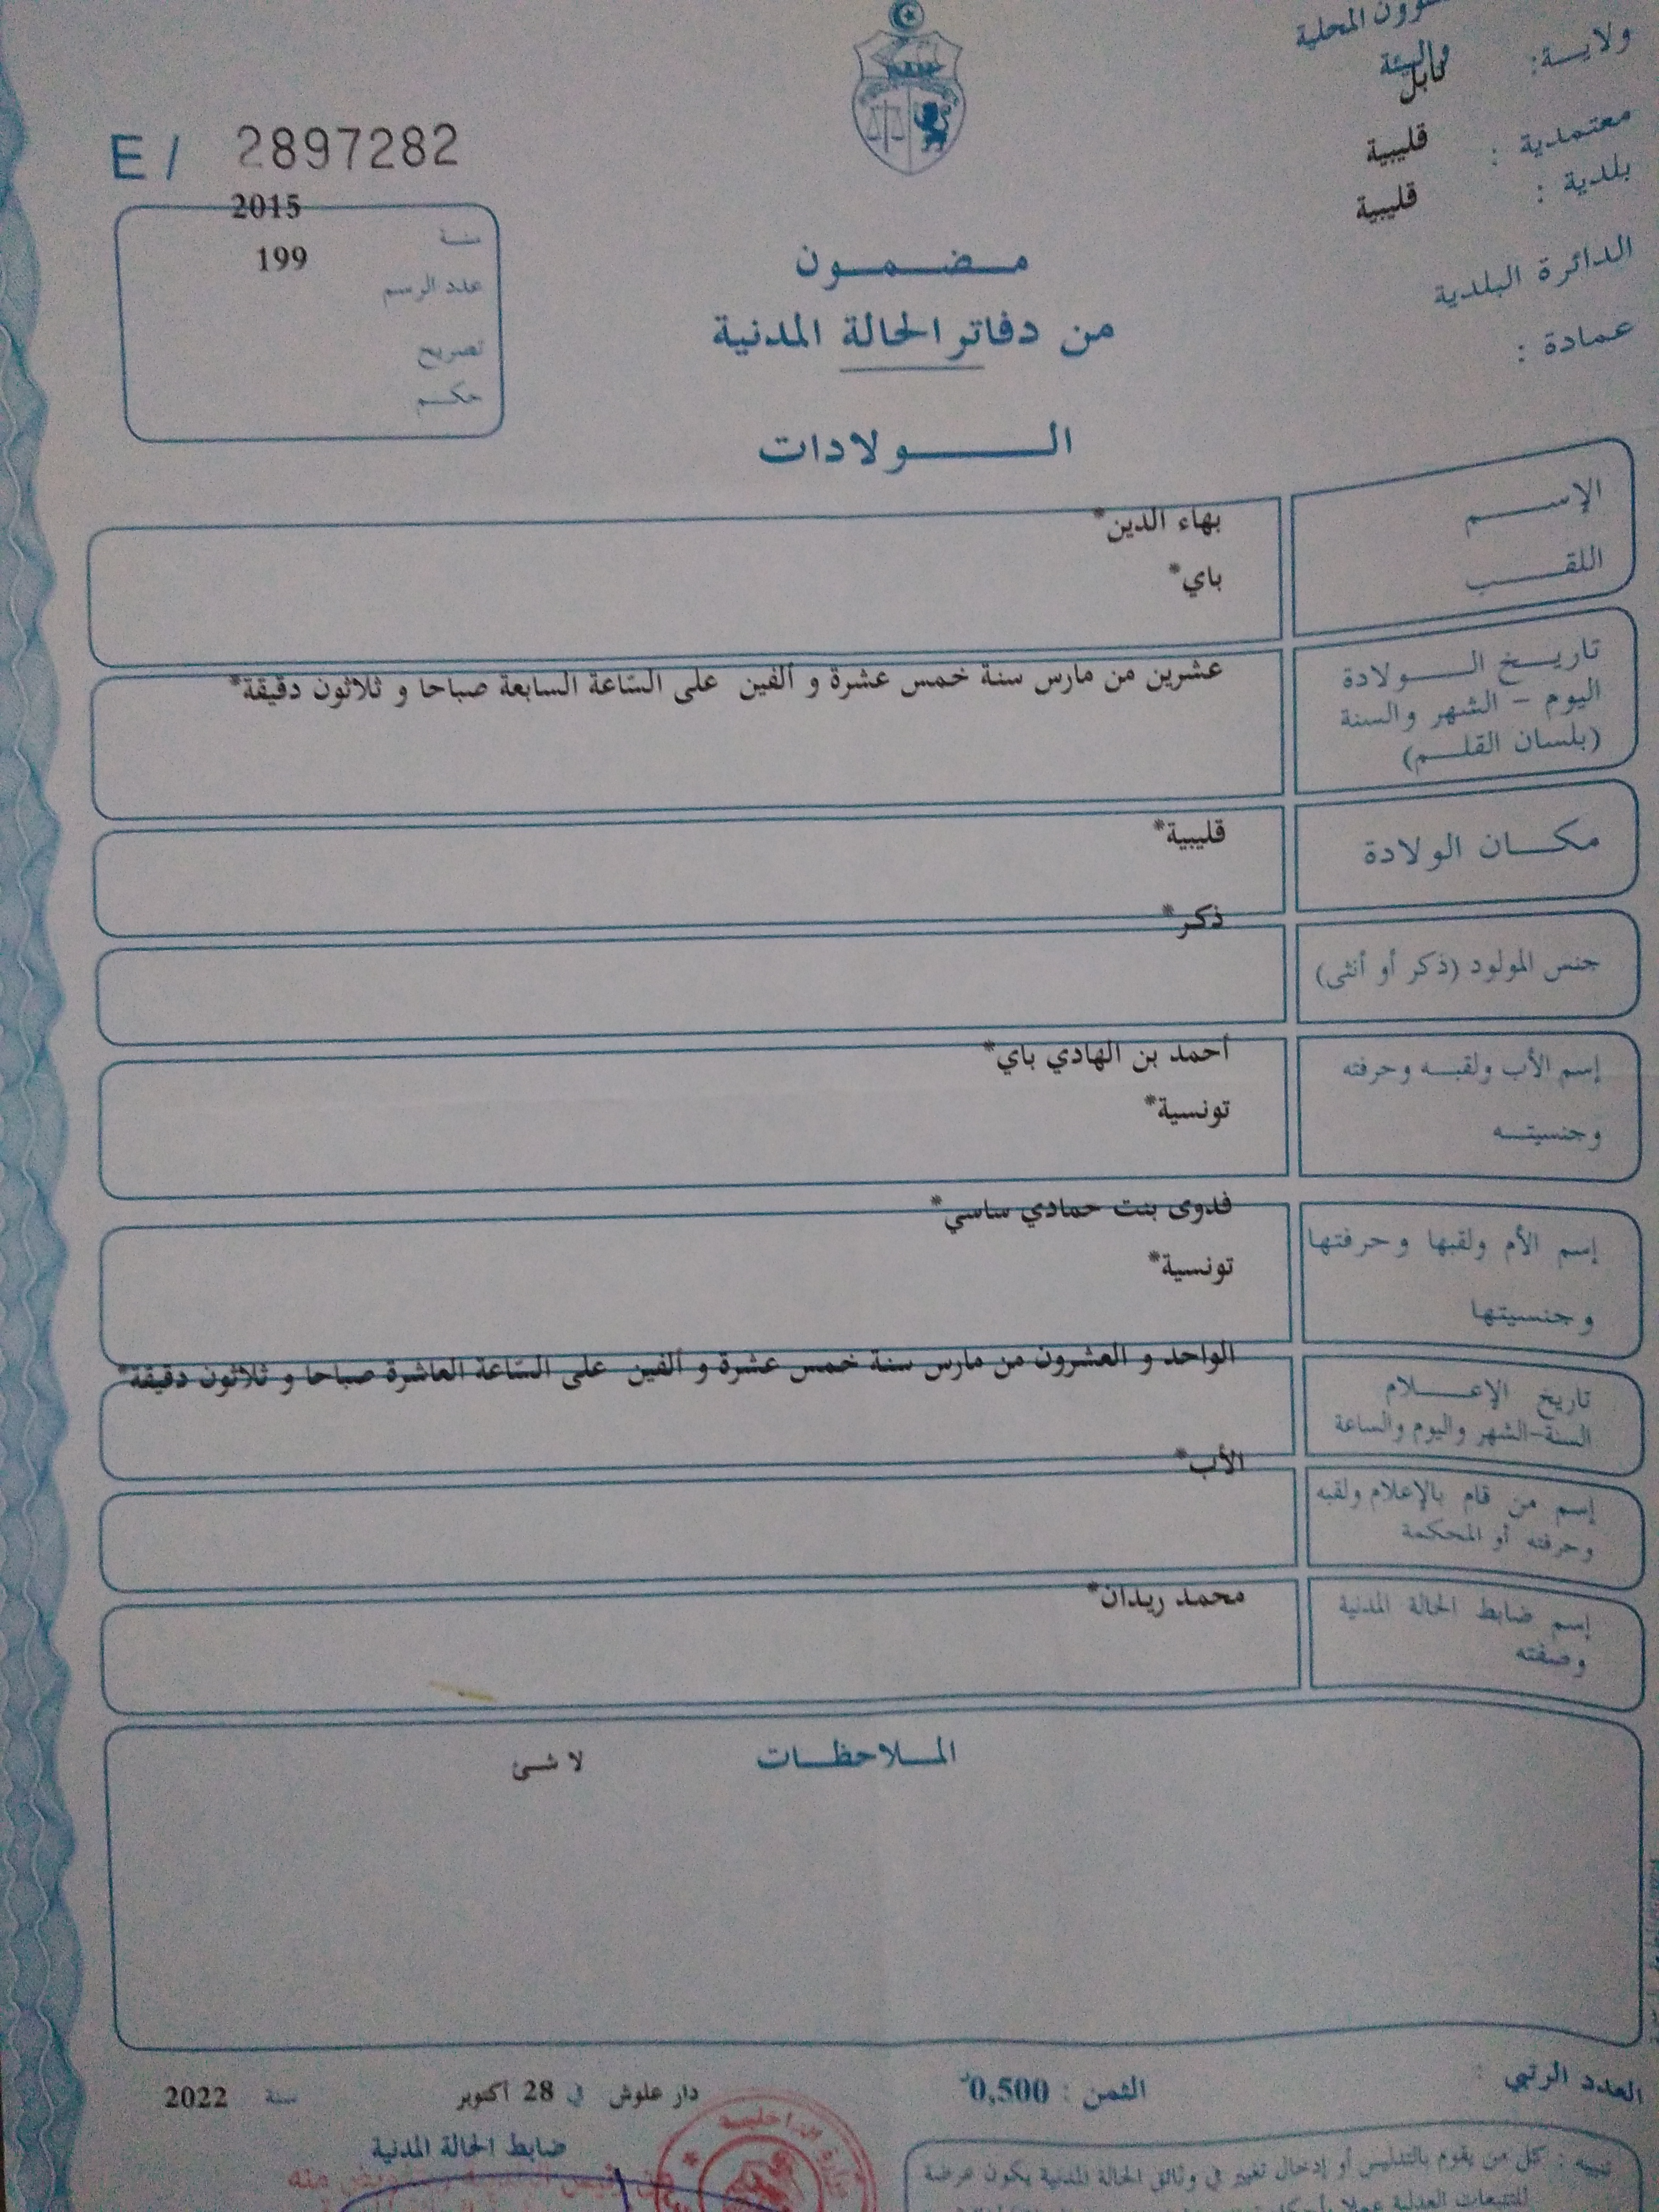 المحلية
والبيئة
ولايـة: نابل
معتمدية : قليبية
بلدية : قليبية
الدائرة البلدية
عمادة :
E / 2897282
2015
سنة
199
عدد الرسم
تصريح
حكم
مضمون
من دفاتر الحالة المدنية
الولادات
الإسم
بهاء الدين*
اللقب
باي*
تاريخ الولادة
اليوم – الشهر والسنة
(بلسان القلم)
عشرين من مارس سنة خمس عشرة و ألفين على السّاعة السابعة صباحا و ثلاثون دقيقة*
مكان الولادة
قليبية*
جنس المولود (ذكر أو أنثى)
ذكر*
إسم الأب ولقبه وحرفته
وجنسيته
أحمد بن الهادي باي*
تونسية*
إسم الأم ولقبها وحرفتها
وجنسيتها
فدوى بنت حمادي ساسي*
تونسية*
تاريخ الإعلام
السنة-الشهر واليوم والساعة
الواحد و العشرون من مارس سنة خمس عشرة و ألفين على السّاعة العاشرة صباحا و ثلاثون دقيقة*
إسم من قام بالإعلام ولقبه
وحرفته أو المحكمة
الأب*
إسم ضابط الحالة المدنية
وصفته
محمد ريدان*
الملاحظات
لا شئ
العدد الرتبي :
الثمن : 0,500
دار علوش في 28 أكتوبر سنة 2022
ضابط الحالة المدنية
تنبيه : كل من يقوم بالتدليس أو إدخال تغيير في وثائق الحالة المدنية يكون عرضة
للتتبعات العدلية عملا بأحكام